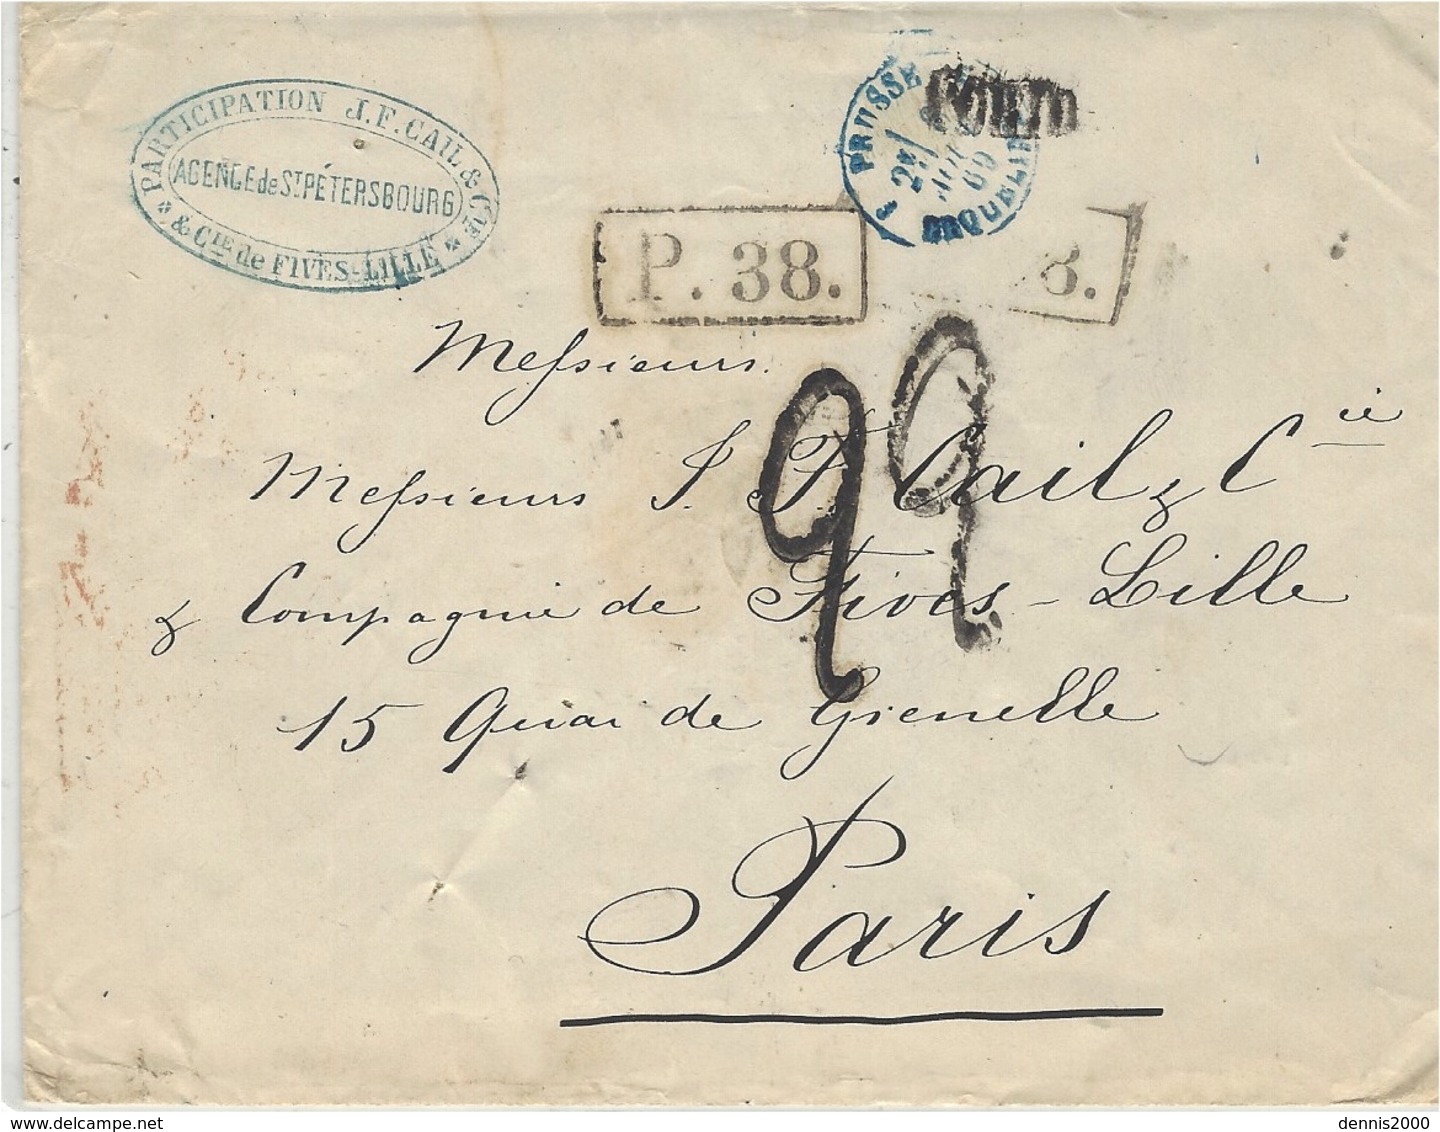 PARTICIPATION J.F. CAIL & CIE
AGENCE de ST PÉTERSBOURG
* & CIE de FIVES-LILLE *
PRUSSE
PORTO
2E
69
ERQUELINES
P. 38.
8.
Messieurs
Messieurs J. F. Cail & Cie
& Compagnie de Fives-Lille
15 Quai de Grenelle
Paris
delcampe.net
dennis2000